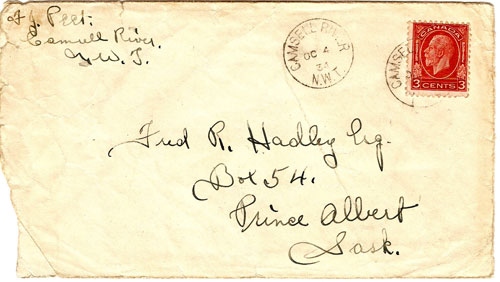 F. J. Peet:
Camsell River,
N. W. T.
CAMSELL RIVER
OC 4
34
N.W.T.
CAMSELL
CANADA
3 CENTS 3
Fred R. Hadley Esq.
Box 54.
Prince Albert
Sask.